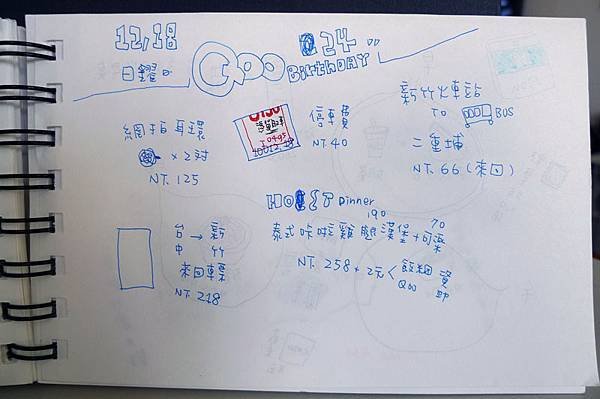 12,18
日曜日
Qoo
24
BIRTHDAY
網拍耳環
x 2对
NT. 125
停車費
NT. 40
新竹火車站
TO BUS
二重埔
NT. 66 (來回)
台中 → 新竹
來回車票
NT. 218
Dinner
190 70
泰式咔啦雞腿漢堡 + 可樂
NT. 258 + 2元
Qoo
資助